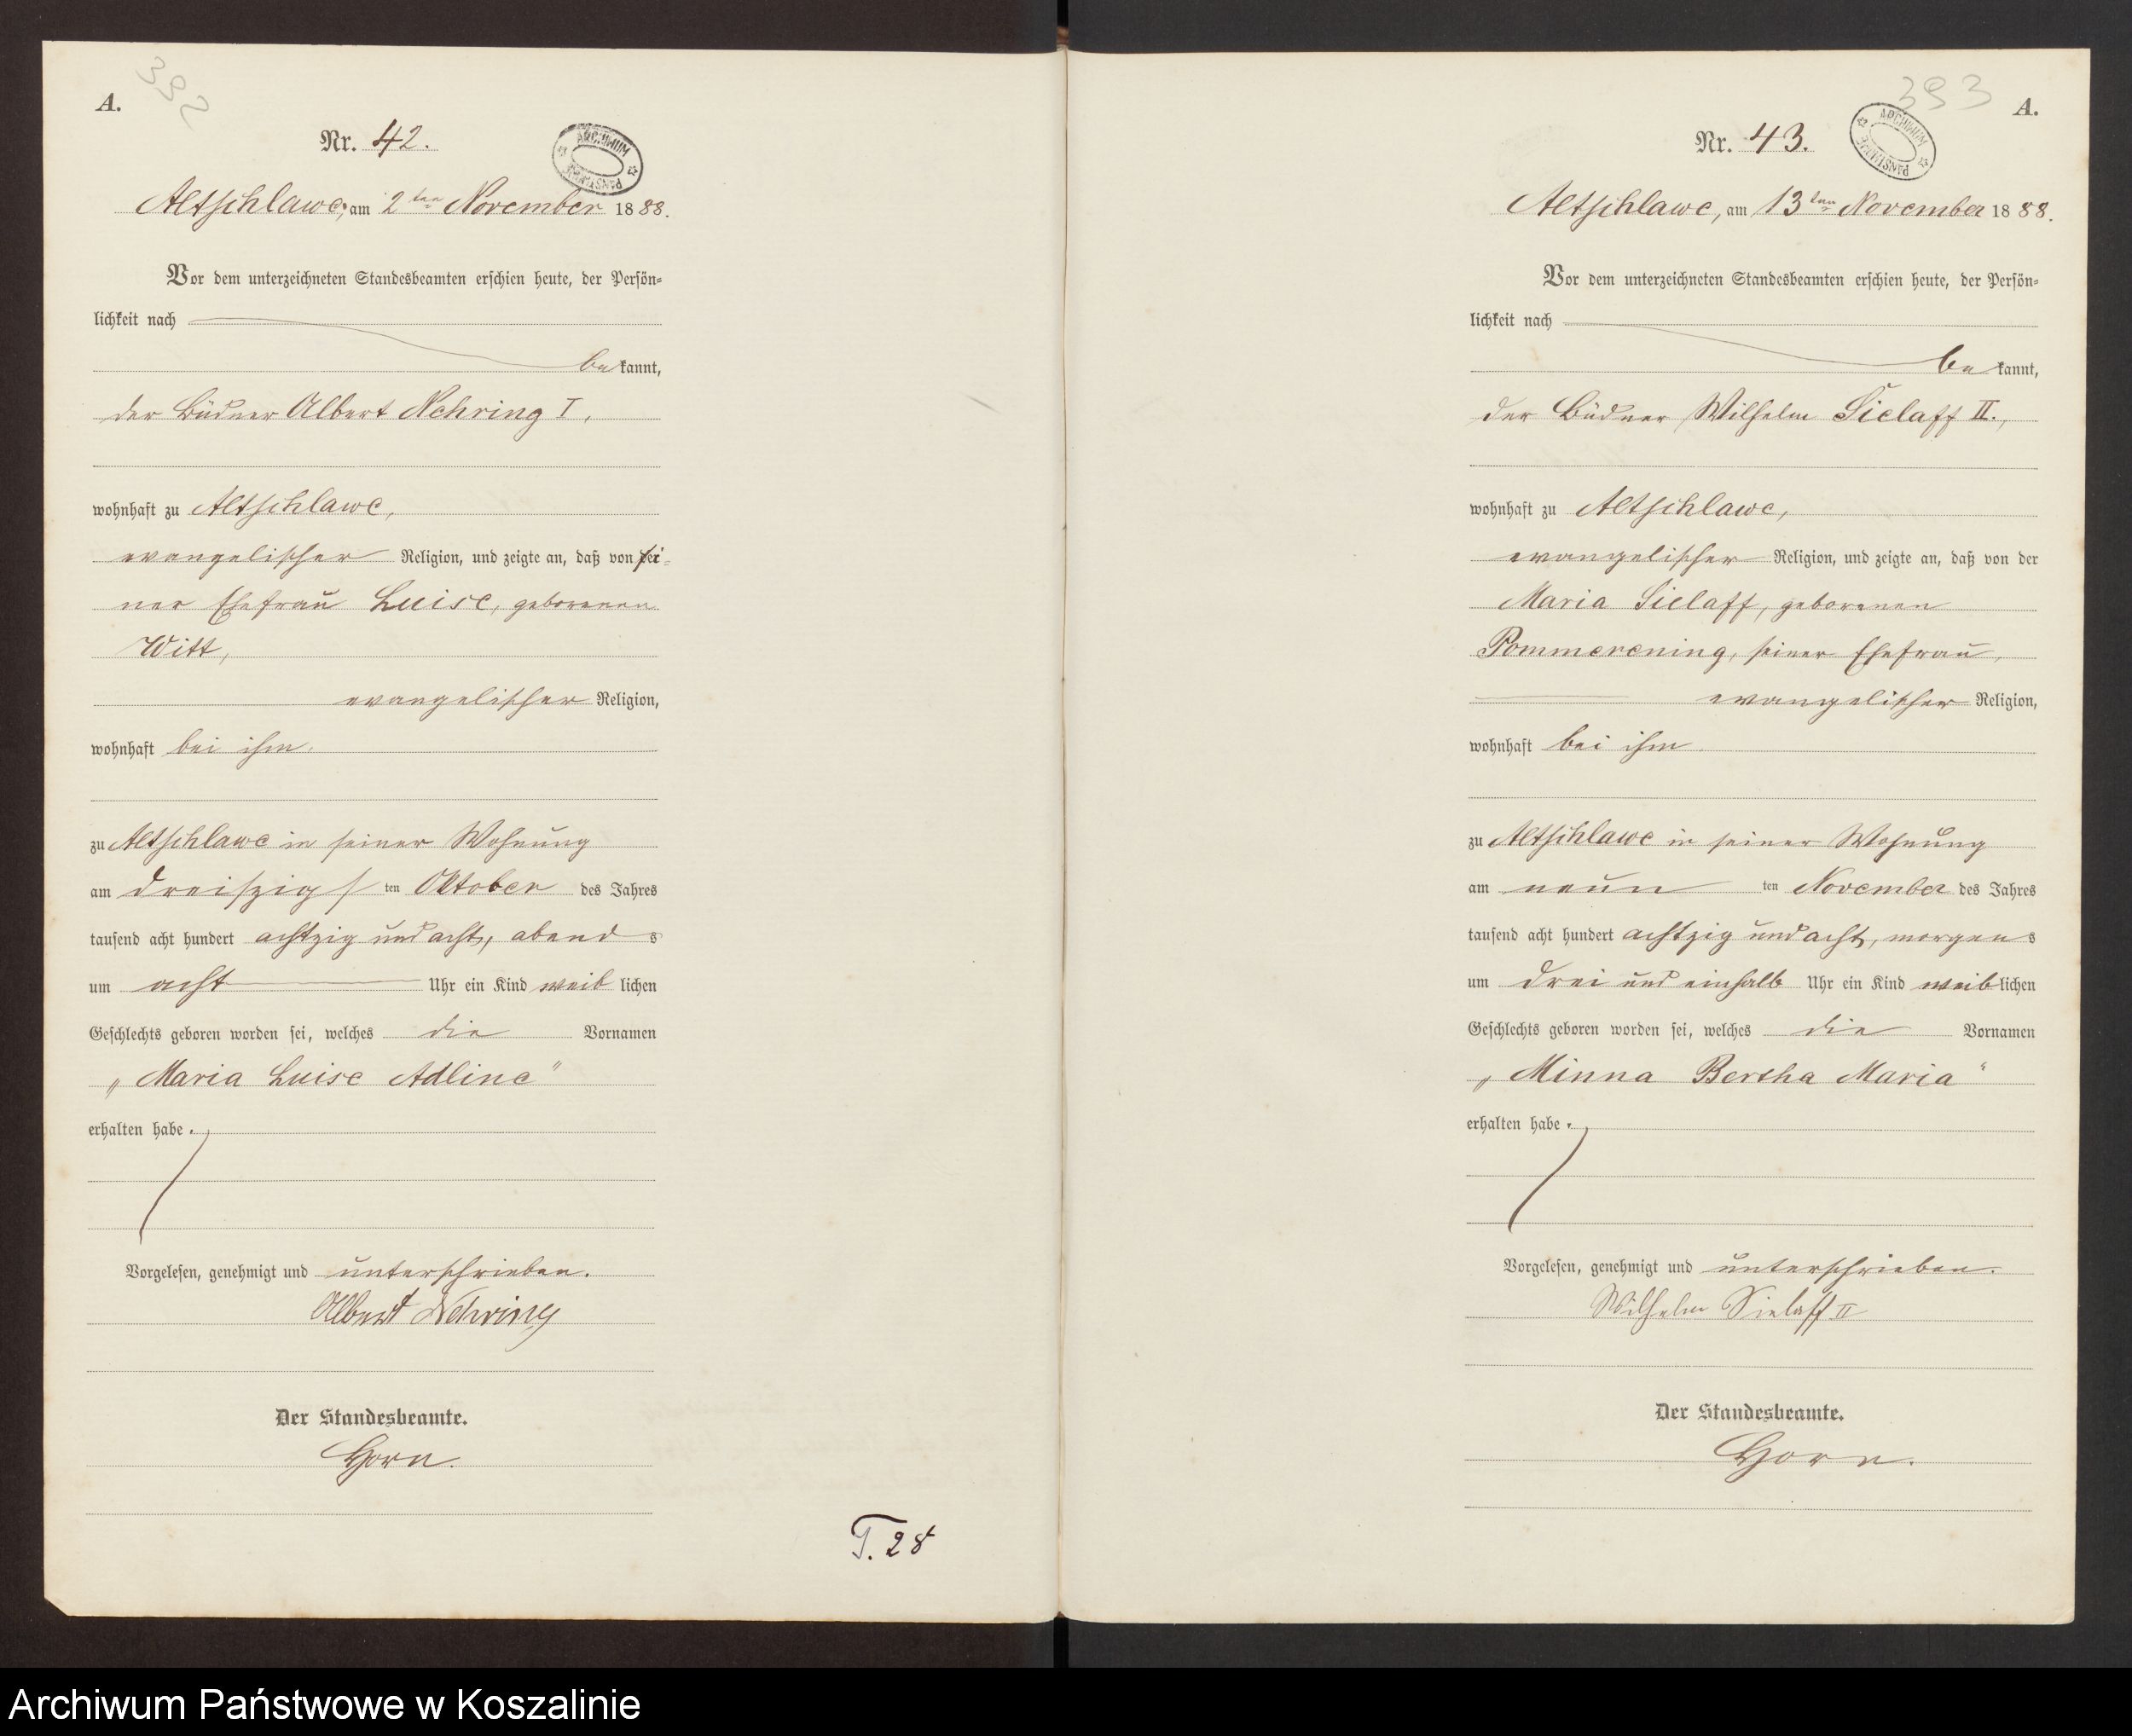 392
A.
Nr. 42.
ARCHIWUM PAŃSTWOWE
Altschlawe, am 2ten November 1888.
Vor dem unterzeichneten Standesbeamten erschien heute, der Persön-
lichkeit nach
bekannt,
der Büdner Albert Nehring I,
wohnhaft zu Altschlawe,
evangelischer Religion, und zeigte an, daß von sei-
ner Ehefrau Luise, geborenen
Witt,
evangelischer Religion,
wohnhaft bei ihm
zu Altschlawe in seiner Wohnung
am dreiszigsten Oktober des Jahres
tausend acht hundert achtzig und acht, abends
um acht Uhr ein Kind weiblichen
Geschlechts geboren worden sei, welches die Vornamen
„Maria Luise Adline"
erhalten habe.
Vorgelesen, genehmigt und unterschrieben.
Albert Nehring
Der Standesbeamte.
Horn.
T. 28
393
A.
Nr. 43.
ARCHIWUM PAŃSTWOWE
Altschlawe, am 13ten November 1888.
Vor dem unterzeichneten Standesbeamten erschien heute, der Persön-
lichkeit nach
bekannt,
der Büdner Wilhelm Sielaff II.,
wohnhaft zu Altschlawe,
evangelischer Religion, und zeigte an, daß von der
Maria Sielaff, geborenen
Pommerening, seiner Ehefrau,
evangelischer Religion,
wohnhaft bei ihm
zu Altschlawe in seiner Wohnung
am neunten November des Jahres
tausend acht hundert achtzig und acht, morgens
um drei und einhalb Uhr ein Kind weiblichen
Geschlechts geboren worden sei, welches die Vornamen
„Minna Bertha Maria"
erhalten habe.
Vorgelesen, genehmigt und unterschrieben.
Wilhelm Sielaff II
Der Standesbeamte.
Horn.
Archiwum Państwowe w Koszalinie